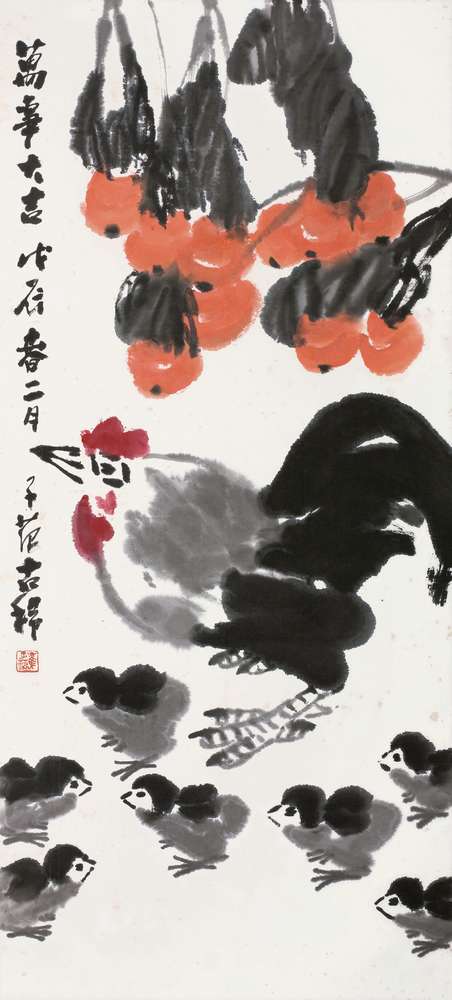 萬事大吉 戊辰春二月 子范古稀